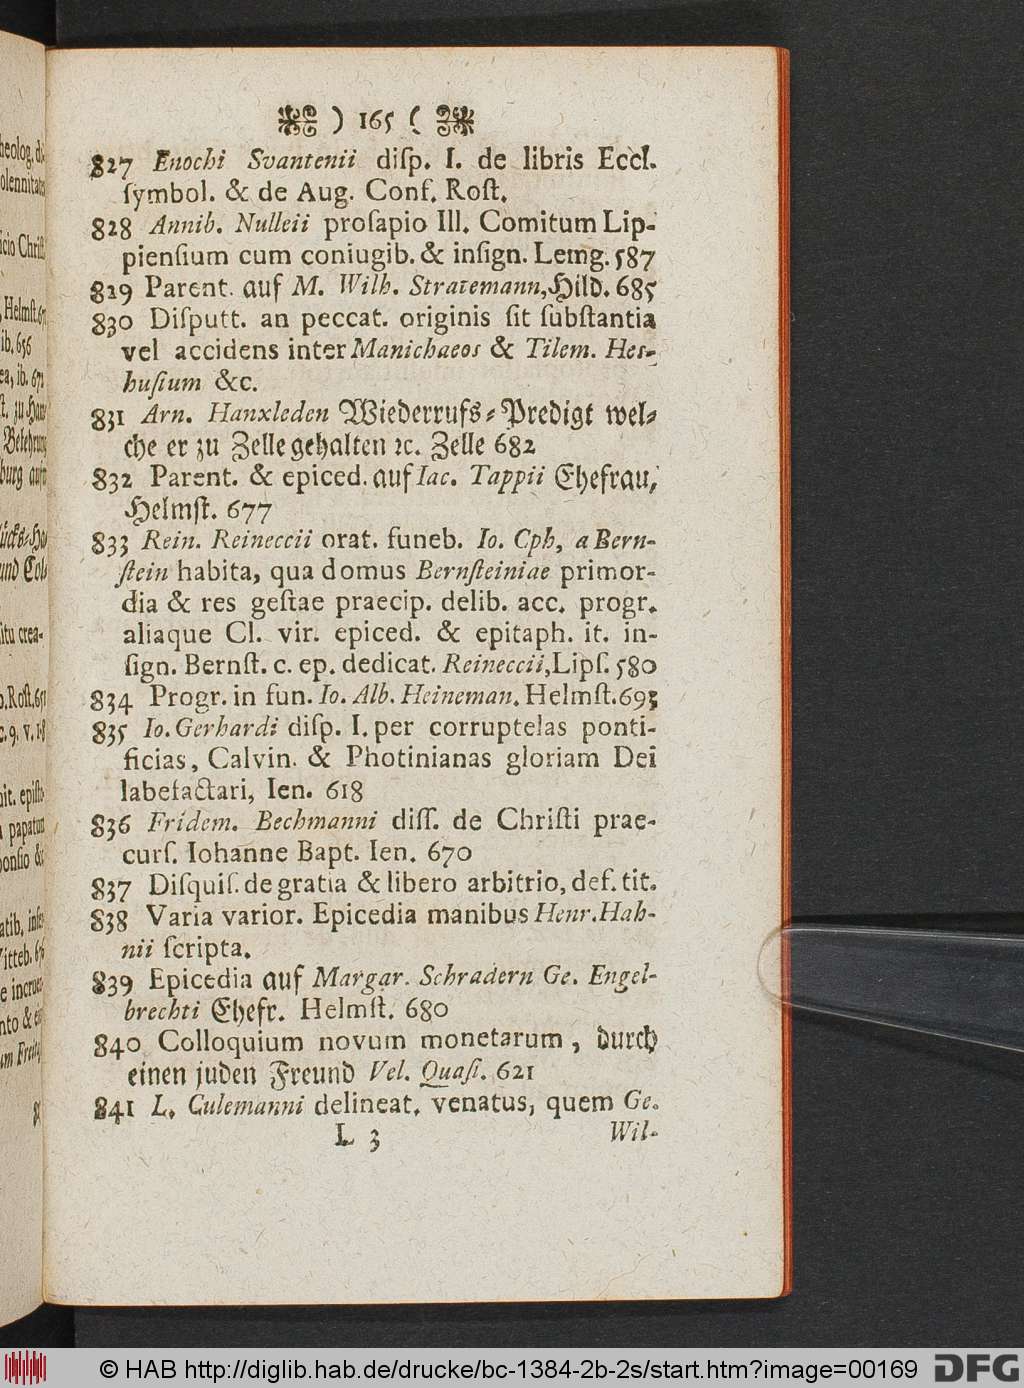 ) 165 (
827 Enochi Svantenii diſp. I. de libris Eccl.
ſymbol. & de Aug. Conf. Roſt.
828 Annib. Nulleii proſapio Ill. Comitum Lip-
pienſium cum coniugib. & inſign. Lemg. 587
829 Parent. auf M. Wilh. Stratemann, Hild. 685
830 Diſputt. an peccat. originis ſit ſubſtantia
vel accidens inter Manichaeos & Tilem. Hes-
huſium &c.
831 Arn. Hanxleden Wiederrufs-Predigt wel-
che er zu Zelle gehalten ꝛc. Zelle 682
832 Parent. & epiced. auf Iac. Tappii Ehefrau,
Helmſt. 677
833 Rein. Reineccii orat. funeb. Io. Cph, a Bern-
ſtein habita, qua domus Bernſteiniae primor-
dia & res geſtae praecip. delib. acc. progr.
aliaque Cl. vir. epiced. & epitaph. it. in-
ſign. Bernſt. c. ep. dedicat. Reineccii, Lipſ. 580
834 Progr. in fun. Io. Alb. Heineman. Helmſt. 693
835 Io. Gerhardi diſp. I. per corruptelas ponti-
ficias, Calvin. & Photinianas gloriam Dei
labefactari, Ien. 618
836 Fridem. Bechmanni diſſ. de Chriſti prae-
curſ. Iohanne Bapt. Ien. 670
837 Diſquiſ. de gratia & libero arbitrio, def. tit.
838 Varia varior. Epicedia manibus Henr. Hah-
nii ſcripta.
839 Epicedia auf Margar. Schradern Ge. Engel-
brechti Ehefr. Helmſt. 680
840 Colloquium novum monetarum, durch
einen juden Freund Vel. Quaſi. 621
841 L. Culemanni delineat. venatus, quem Ge.
L 3 Wil-
© HAB http://diglib.hab.de/drucke/bc-1384-2b-2s/start.htm?image=00169 DFG